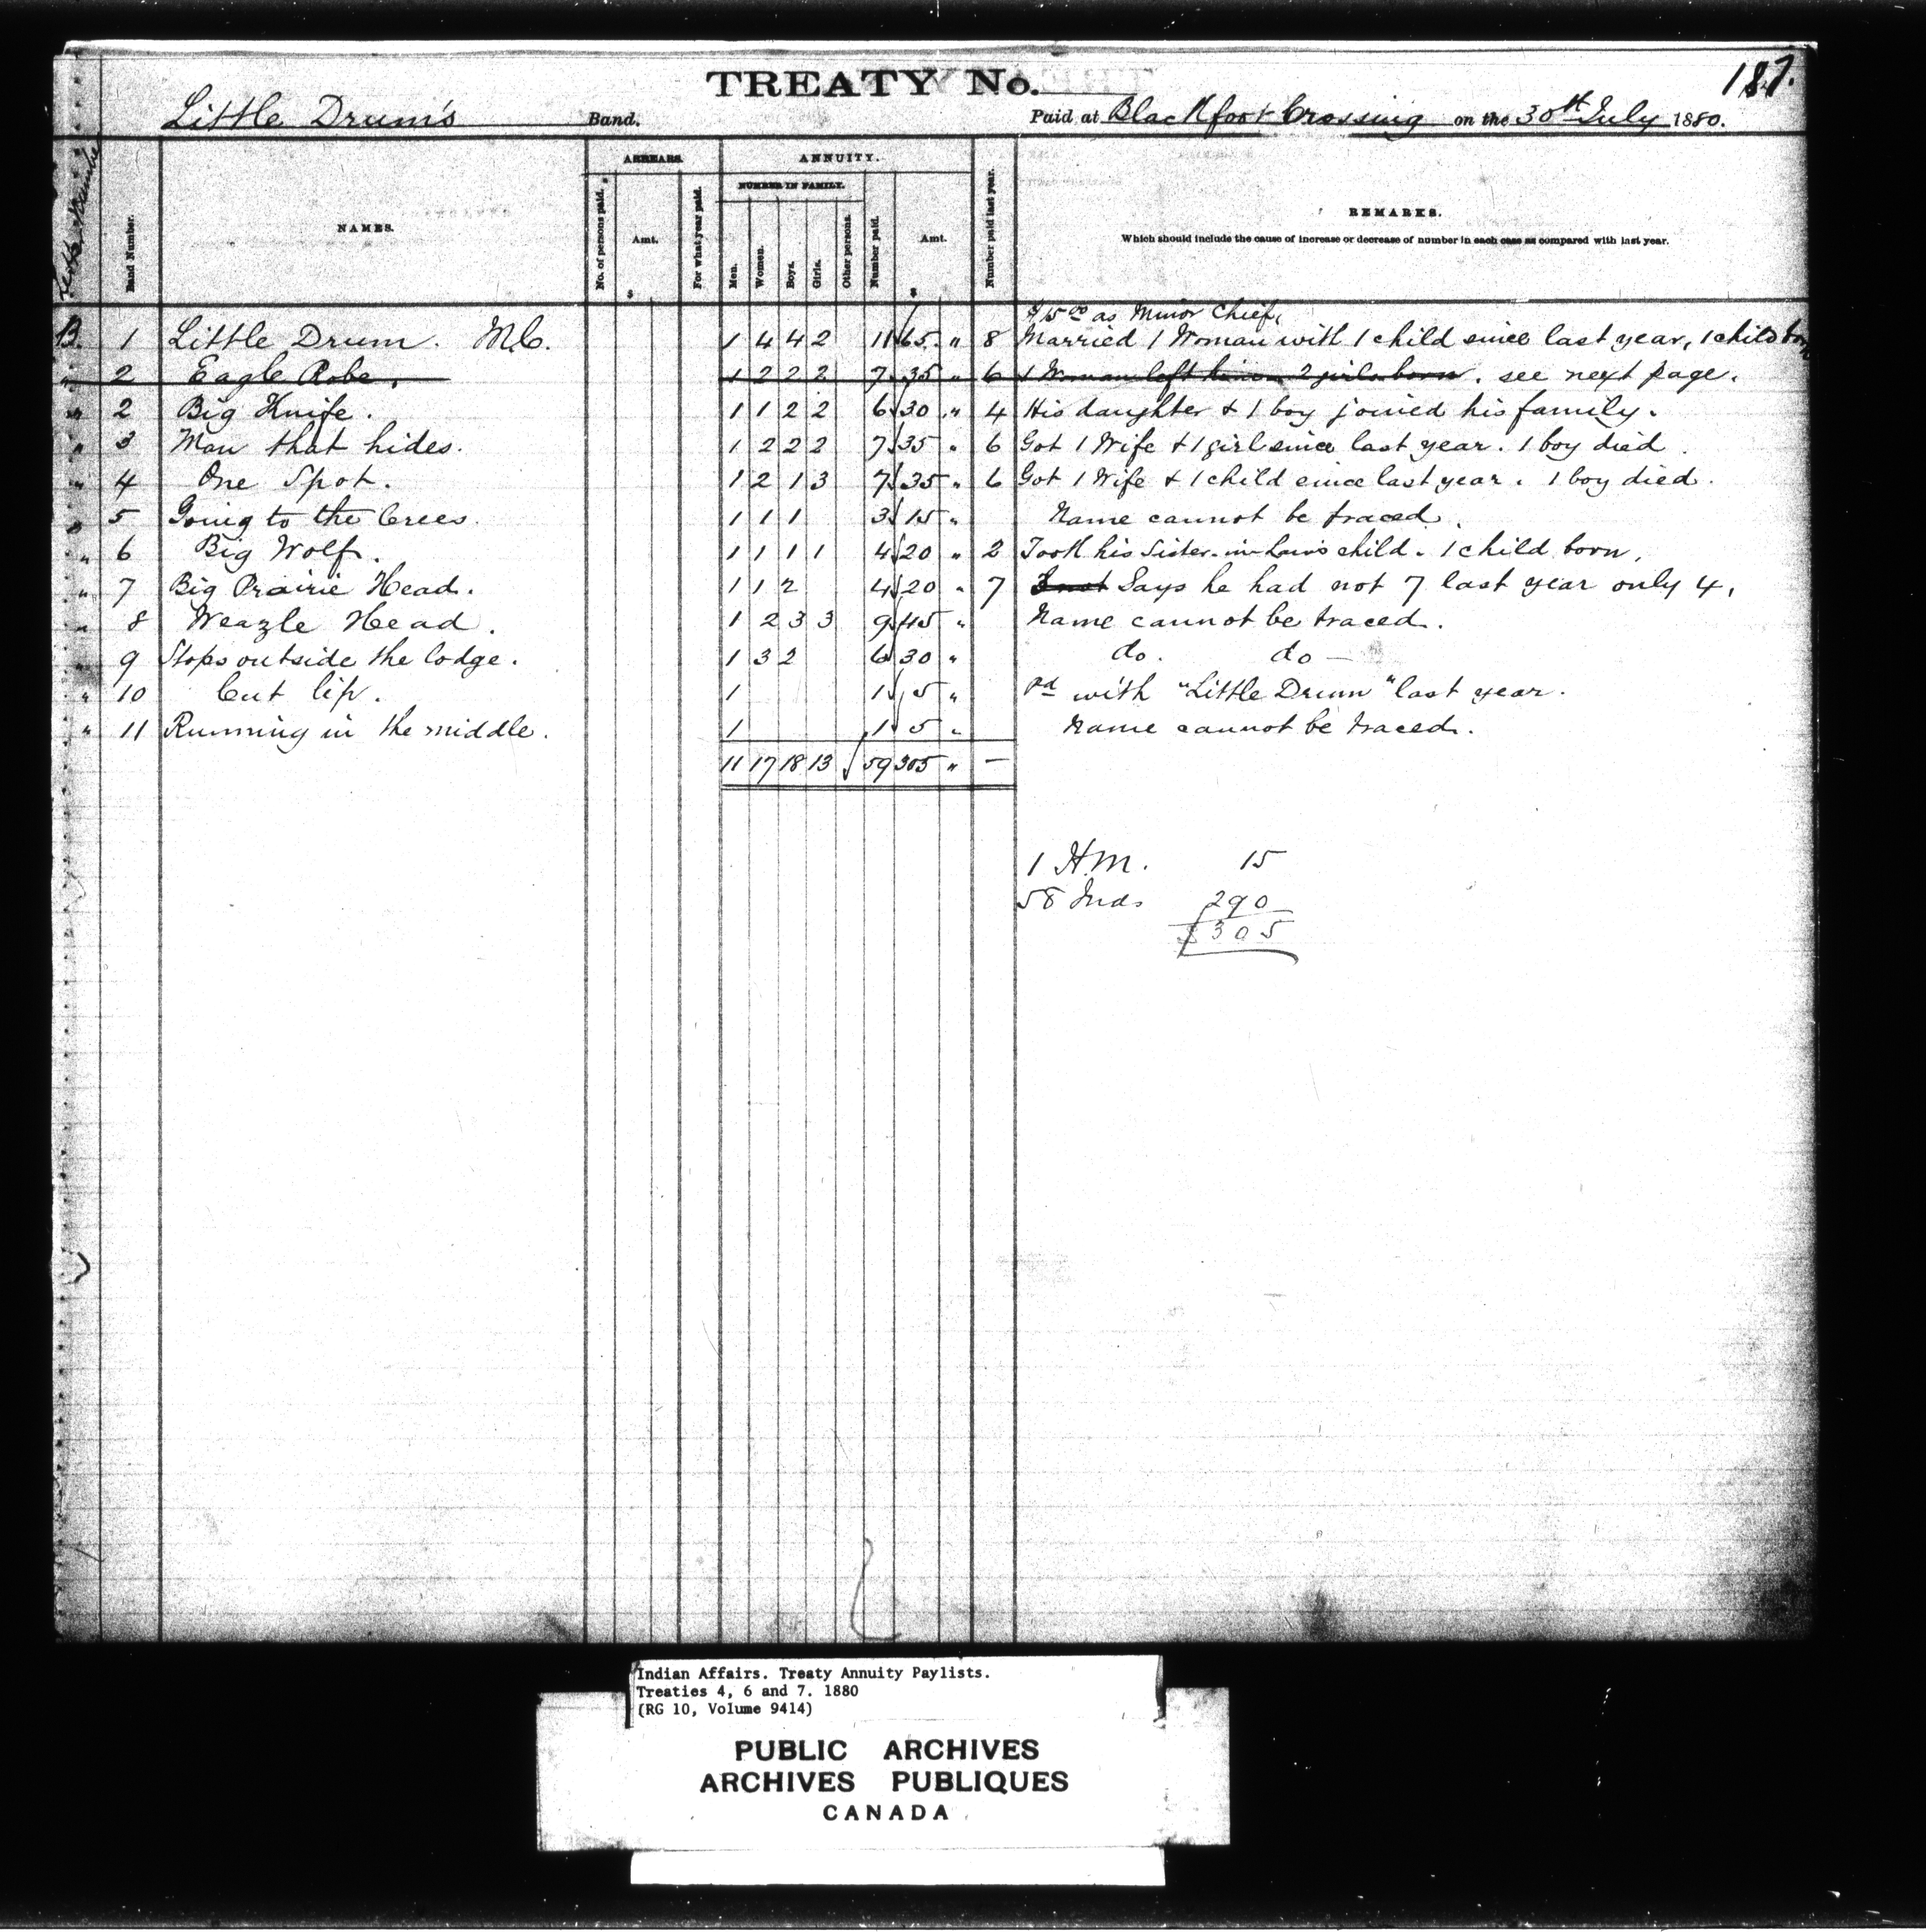 187.
TREATY No.
Little Drum's Band. Paid at Blackfoot Crossing on the 30th July 1880.
ARREARS. ANNUITY.
NUMBER IN FAMILY.
Band Number. NAMES. No. of persons paid. Amt. For what year paid. Men. Women. Boys. Girls. Other persons. Number paid. Amt. Number paid last year. REMARKS.
Which should include the cause of increase or decrease of number in each case as compared with last year.
$ $
$15 00 as Minor Chief,
B. 1 Little Drum. M.C. 1 4 4 2 11 65 " 8 Married 1 Woman with 1 child since last year, 1 child born
" 2 Eagle Robe. 1 2 2 2 7 35 " 6 1 Woman left him 2 girls born. see next page.
" 2 Big Knife. 1 1 2 2 6 30 " 4 His daughter & 1 boy joined his family.
" 3 Man that hides. 1 2 2 2 7 35 " 6 Got 1 Wife & 1 girl since last year. 1 boy died.
" 4 One Spot. 1 2 1 3 7 35 " 6 Got 1 Wife & 1 child since last year. 1 boy died.
" 5 Going to the Crees. 1 1 1 3 15 " Name cannot be traced.
" 6 Big Wolf. 1 1 1 1 4 20 " 2 Took his Sister-in-Law's child. 1 child born.
" 7 Big Prairie Head. 1 1 2 4 20 " 7 Says he had not 7 last year only 4.
" 8 Weazle Head. 1 2 3 3 9 45 " Name cannot be traced.
" 9 Stops outside the lodge. 1 3 2 6 30 " do. do —
" 10 Cut lip. 1 1 5 " Pd with "Little Drum" last year.
" 11 Running in the middle. 1 1 5 " Name cannot be traced.
11 17 18 13 59 305 " —
1 H.M. 15
58 Inds 290
$305
Indian Affairs. Treaty Annuity Paylists.
Treaties 4, 6 and 7. 1880
(RG 10, Volume 9414)
PUBLIC ARCHIVES
ARCHIVES PUBLIQUES
CANADA